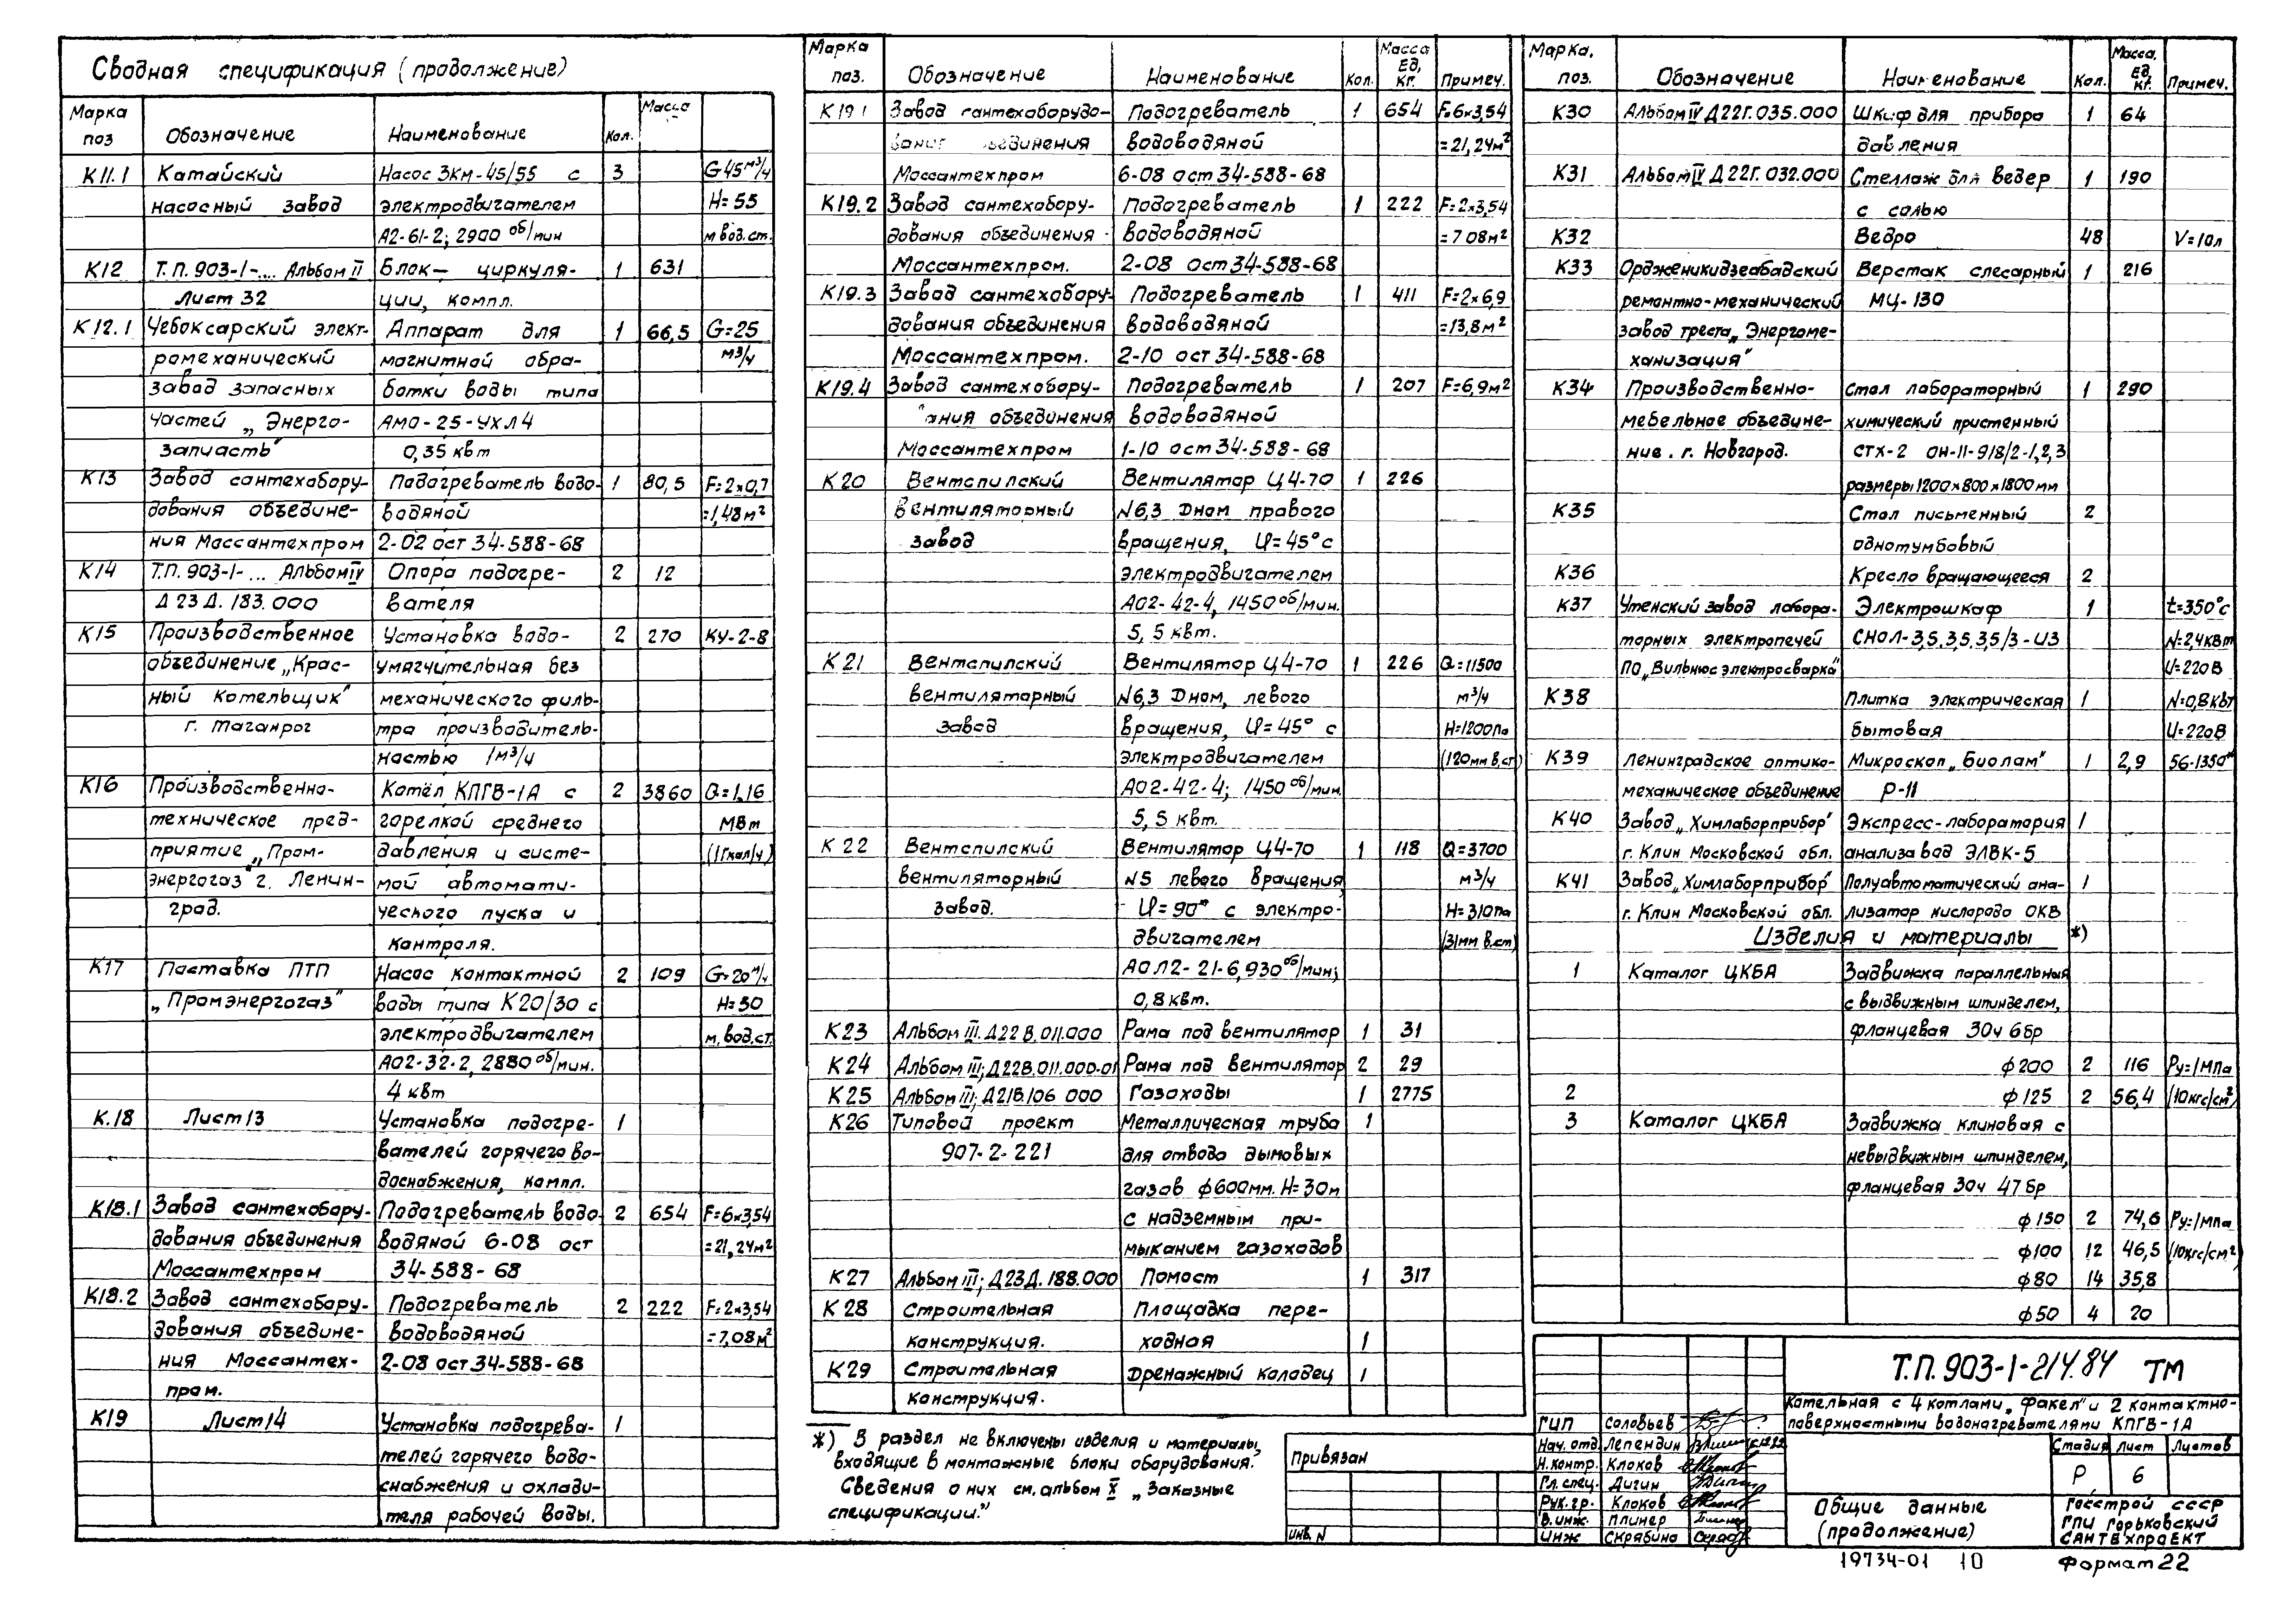 Сводная спецификация (продолжение)
Марка поз Обозначение Наименование Кол. Масса
К11.1 Катайский Насос 3КМ-45/55 с 3 G 45 м³/ч
насосный завод электродвигателем H=55
А2-61-2; 2900 об/мин м вод.ст.
К12 Т.П. 903-1-... Альбом II Блок — циркуля- 1 631
Лист 32 ции, компл.
К12.1 Чебоксарский элект- Аппарат для 1 66,5 G=25
ромеханический магнитной обра- м³/ч
завод запасных ботки воды типа
частей „Энерго- АМО-25-УХЛ4
запчасть" 0,35 квт
К13 Завод сантехобору- Подогреватель водо- 1 80,5 F=2×0,7
дования объедине- водяной =1,48м²
ния Моссантехпром 2-02 ост 34-588-68
К14 Т.П. 903-1-... Альбом IV Опора подогре- 2 12
Д 23 Д. 183.000 вателя
К15 Производственное Установка водо- 2 270 КУ-2-8
объединение „Крас- умягчительная без
ный котельщик" механического филь-
г. Таганрог тра производитель-
ностью 1м³/ч
К16 Производственно- Котёл КПГВ-1А с 2 3860 Q=1,16
техническое пред- горелкой среднего МВт
приятие „Пром- давления и систе- (1Гкал/ч)
энергогаз" г. Ленин- мой автомати-
град. ческого пуска и
контроля.
К17 Поставка ПТП Насос контактной 2 109 G=20м³/ч
„Промэнергогаз" воды типа К20/30 с H=30
электродвигателем м.вод.ст.
АО2-32-2, 2880 об/мин.
4 квт
К.18 Лист 13 Установка подогре- 1
вателей горячего во-
доснабжения, компл.
К18.1 Завод сантехобору- Подогреватель водо- 2 654 F=6×3,54
дования объединения водяной 6-08 ост =21,24м²
Моссантехпром 34-588-68
К18.2 Завод сантехобору- Подогреватель 2 222 F=2×3,54
дования объедине- водоводяной =7,08м²
ния Моссантех- 2-08 ост 34-588-68
пром.
К19 Лист 14 Установка подогрева- 1
телей горячего водо-
снабжения и охлади-
теля рабочей воды.
Марка поз. Обозначение Наименование Кол. Масса Ед, кг. Примеч.
К19.1 Завод сантехоборудо- Подогреватель 1 654 F=6×3,54
объединения водоводяной =21,24м²
Моссантехпром 6-08 ост 34-588-68
К19.2 Завод сантехобору- Подогреватель 1 222 F=2×3,54
дования объединения водоводяной =7 08м²
Моссантехпром. 2-08 ост 34-588-68
К19.3 Завод сантехобору- Подогреватель 1 411 F=2×6,9
дования объединения водоводяной =13,8м²
Моссантехпром. 2-10 ост 34-588-68
К19.4 Завод сантехобору- Подогреватель 1 207 F=6,9м²
ания объединения водоводяной
Моссантехпром 1-10 ост 34-588-68
К20 Вентспилский Вентилятор Ц4-70 1 226
вентиляторный N6,3 Dном правого
завод вращения, Ψ=45° с
электродвигателем
АО2-42-4, 1450 об/мин.
5,5 квт.
К21 Вентспилский Вентилятор Ц4-70 1 226 Q=11500
вентиляторный N6,3 Dном, левого м³/ч
завод вращения, Ψ=45° с H=1200па
электродвигателем (120мм в.ст)
АО2-42-4; 1450 об/мин.
5,5 квт.
К22 Вентспилский Вентилятор Ц4-70 1 118 Q=3700
вентиляторный N5 левого вращения м³/ч
завод. Ψ=90° с электро- H=310па
двигателем (31мм в.ст)
АОЛ2-21-6, 930 об/мин;
0,8 квт.
К23 Альбом III. Д22В.011.000 Рама под вентилятор 1 31
К24 Альбом III; Д22В.011.000-01 Рама под вентилятор 2 29
К25 Альбом III; Д21В.106 000 Газоходы 1 2775
К26 Типовой проект Металлическая труба 1
907-2-221 для отвода дымовых
газов ф600мм. H=30м
с надземным при-
мыканием газоходов
К27 Альбом III; Д23Д.188.000 Помост 1 317
К28 Строительная Площадка пере-
конструкция. ходная 1
К29 Строительная Дренажный колодец 1
конструкция.
*) В раздел не включены изделия и материалы,
входящие в монтажные блоки оборудования.
Сведения о них см. альбом X „Заказные
спецификации."
Привязан
ИНВ. N
Марка, поз. Обозначение Наименование Кол. Масса, Ед, кг. Примеч.
К30 Альбом IV Д22Г.035.000 Шкаф для прибора 1 64
давления
К31 Альбом IV Д22Г.032.000 Стеллаж для ведер 1 190
с солью
К32 Ведро 48 V=10л
К33 Орджоникидзеабадский Верстак слесарный 1 216
ремонтно-механический МЦ-130
завод треста „Энергоме-
ханизация"
К34 Производственно- Стол лабораторный 1 290
мебельное объедине- химический пристенный
ние. г. Новгород. СТХ-2 ОН-11-918/2-1,2,3
размеры 1200×800×1800мм
К35 Стол письменный 2
однотумбовый
К36 Кресло вращающееся 2
К37 Утенский завод лабора- Электрошкаф 1 t=350°с
торных электропечей СНОЛ-3,5.3,5.3,5/3-И3 N=2,4квт
ПО „Вильнюсэлектросварка" U=220В
К38 Плитка электрическая 1 N=0,8квт
бытовая U=220В
К39 Ленинградское оптико- Микроскоп „Биолам" 1 2,9 56-1350ˣ
механическое объединение Р-11
К40 Завод „Химлаборприбор" Экспресс-лаборатория 1
г. Клин Московской обл. анализа вод ЭЛВК-5
К41 Завод „Химлаборприбор" Полуавтоматический ана- 1
г. Клин Московской обл. лизатор кислорода ОКВ
Изделия и материалы *)
1 Каталог ЦКБА Задвижка параллельная
с выдвижным шпинделем,
фланцевая 30ч 6бр
ф200 2 116 Ру=1МПа
2 ф125 2 56,4 (10кгс/см²)
3 Каталог ЦКБА Задвижка клиновая с
невыдвижным шпинделем,
фланцевая 30ч 47бр
ф150 2 74,6 Ру=1МПа
ф100 12 46,5 (10кгс/см²)
ф80 14 35,8
ф50 4 20
Т.П. 903-1-214.84 ТМ
Котельная с 4 котлами „Факел" и 2 контактно-
поверхностными водонагревателями КПГВ-1А
ГИП Соловьев
Нач. отд. Лепендин
Н.контр. Клоков
Гл. спец. Дигин
Рук. гр. Клоков
В. инж. Плинер
Инж Скрябина
Стадия Лист Листов
Р 6
Общие данные
(продолжение)
Госстрой СССР
ГПИ Горьковский
САНТЕХПРОЕКТ
19734-01 10 Формат 22